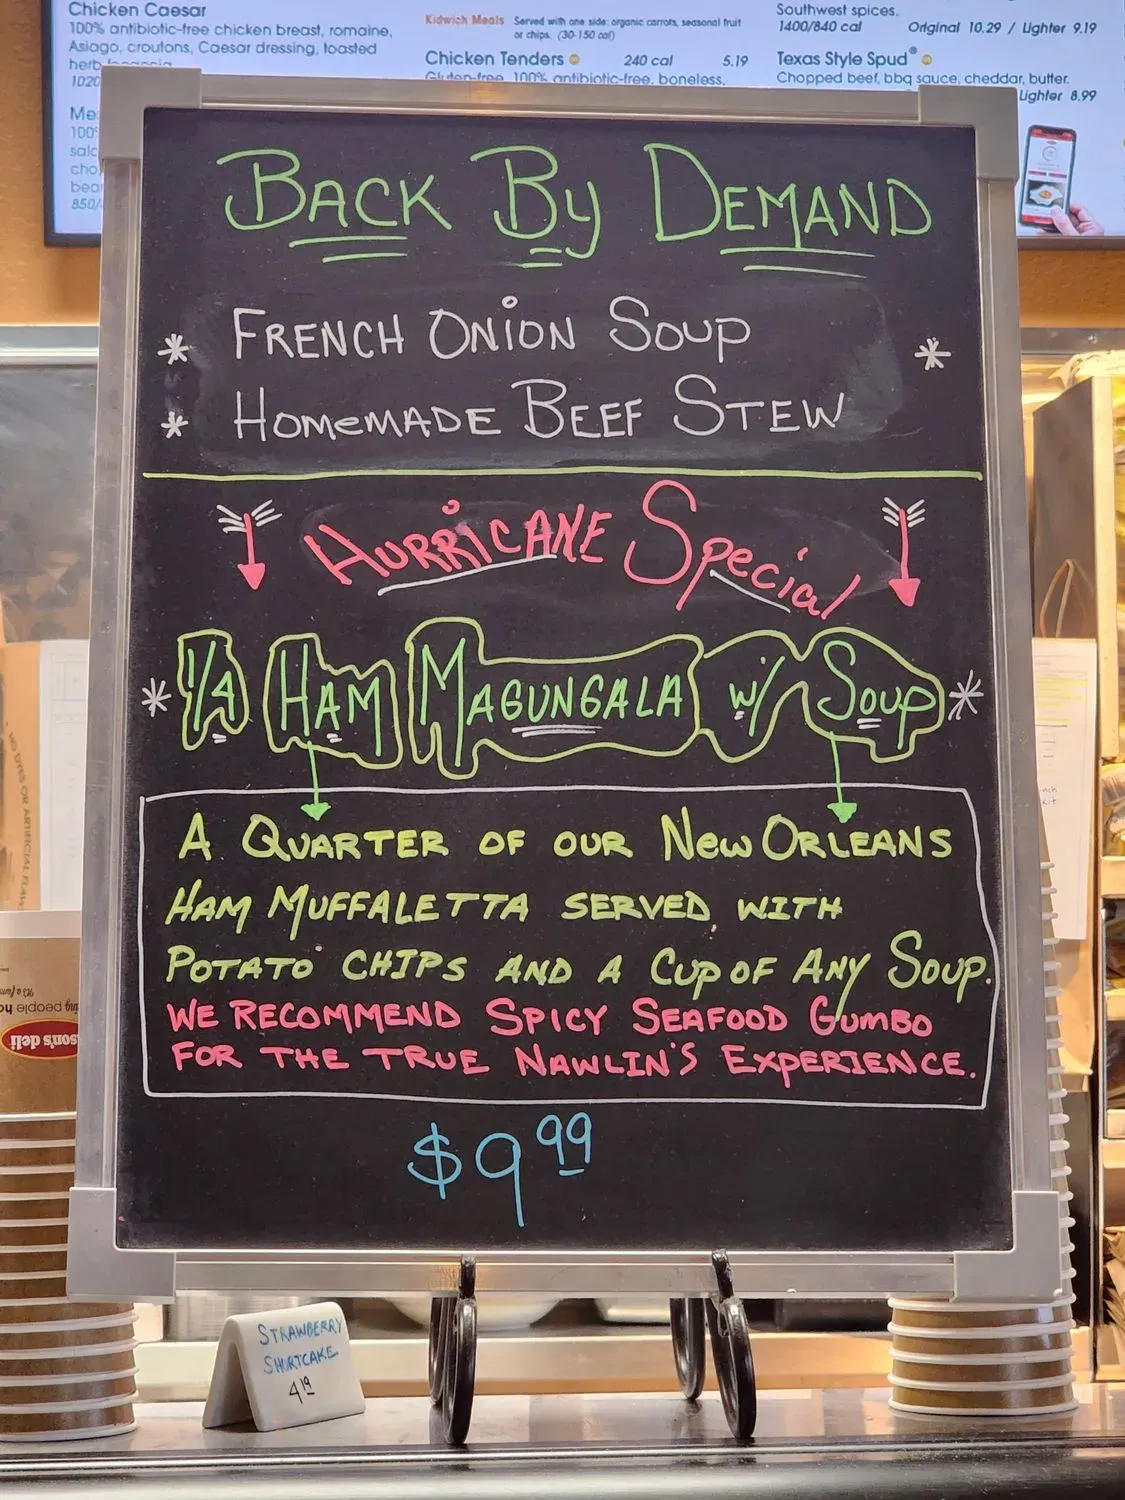 Chicken Caesar
100% antibiotic-free chicken breast, romaine,
Asiago, croutons, Caesar dressing, toasted
herb focaccia
1020
Me
100%
850/
Kidwich Meals Served with one side: organic carrots, seasonal fruit
or chips. (30-150 cal)
Chicken Tenders 240 cal 5.19
Gluten-free, 100% antibiotic-free, boneless,
Southwest spices.
1400/840 cal Original 10.29 / Lighter 9.19
Texas Style Spud®
Chopped beef, bbq sauce, cheddar, butter.
Lighter 8.99
BACK BY DEMAND
* FRENCH ONION SOUP *
* HOMEMADE BEEF STEW
HURRICANE Special
* 1/4 HAM MAGUNGALA w/ SOUP *
A QUARTER OF OUR NEW ORLEANS
HAM MUFFALETTA SERVED WITH
POTATO CHIPS AND A CUP OF ANY SOUP.
WE RECOMMEND SPICY SEAFOOD GUMBO
FOR THE TRUE NAWLIN'S EXPERIENCE.
$9.99
STRAWBERRY
SHORTCAKE
4.19
NO DYES OR ARTIFICIAL FLA
people
son's deli